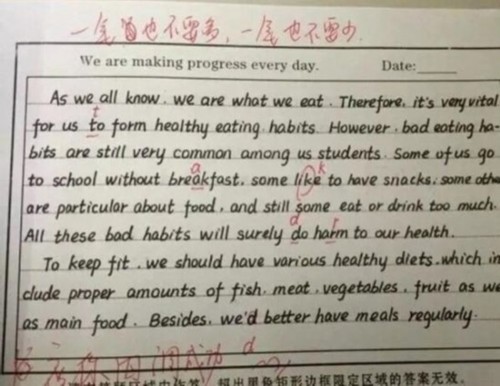 一尾酒也不要多，一尾也不要少
We are making progress every day. Date:
As we all know, we are what we eat. Therefore, it's very vital
t
for us to form healthy eating habits. However, bad eating ha-
bits are still very common among us students. Some of us go
a k
to school without breakfast, some like to have snacks, some othe
are particular about food, and still some eat or drink too much.
d r
All these bad habits will surely do harm to our health.
To keep fit, we should have various healthy diets, which in
clude proper amounts of fish, meat, vegetables, fruit as we
as main food. Besides, we'd better have meals regularly.
d
超出黑色矩形边框限定区域的答案无效。